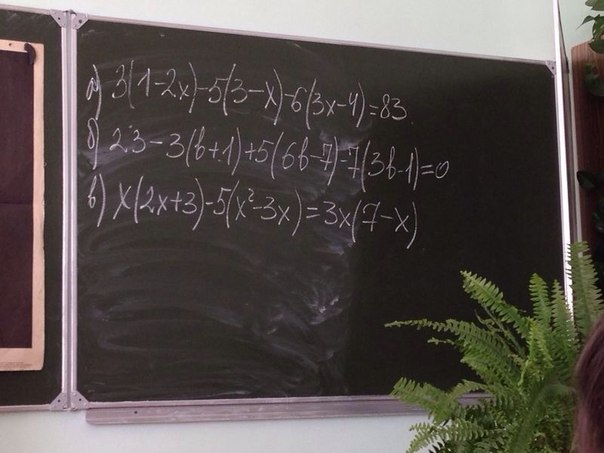 а) 3(1-2x)-5(3-x)-6(3x-4)=83.
б) 23-3(b+1)+5(6b-7)-7(3b-1)=0
в) x(2x+3)-5(x²-3x)=3x(7-x)